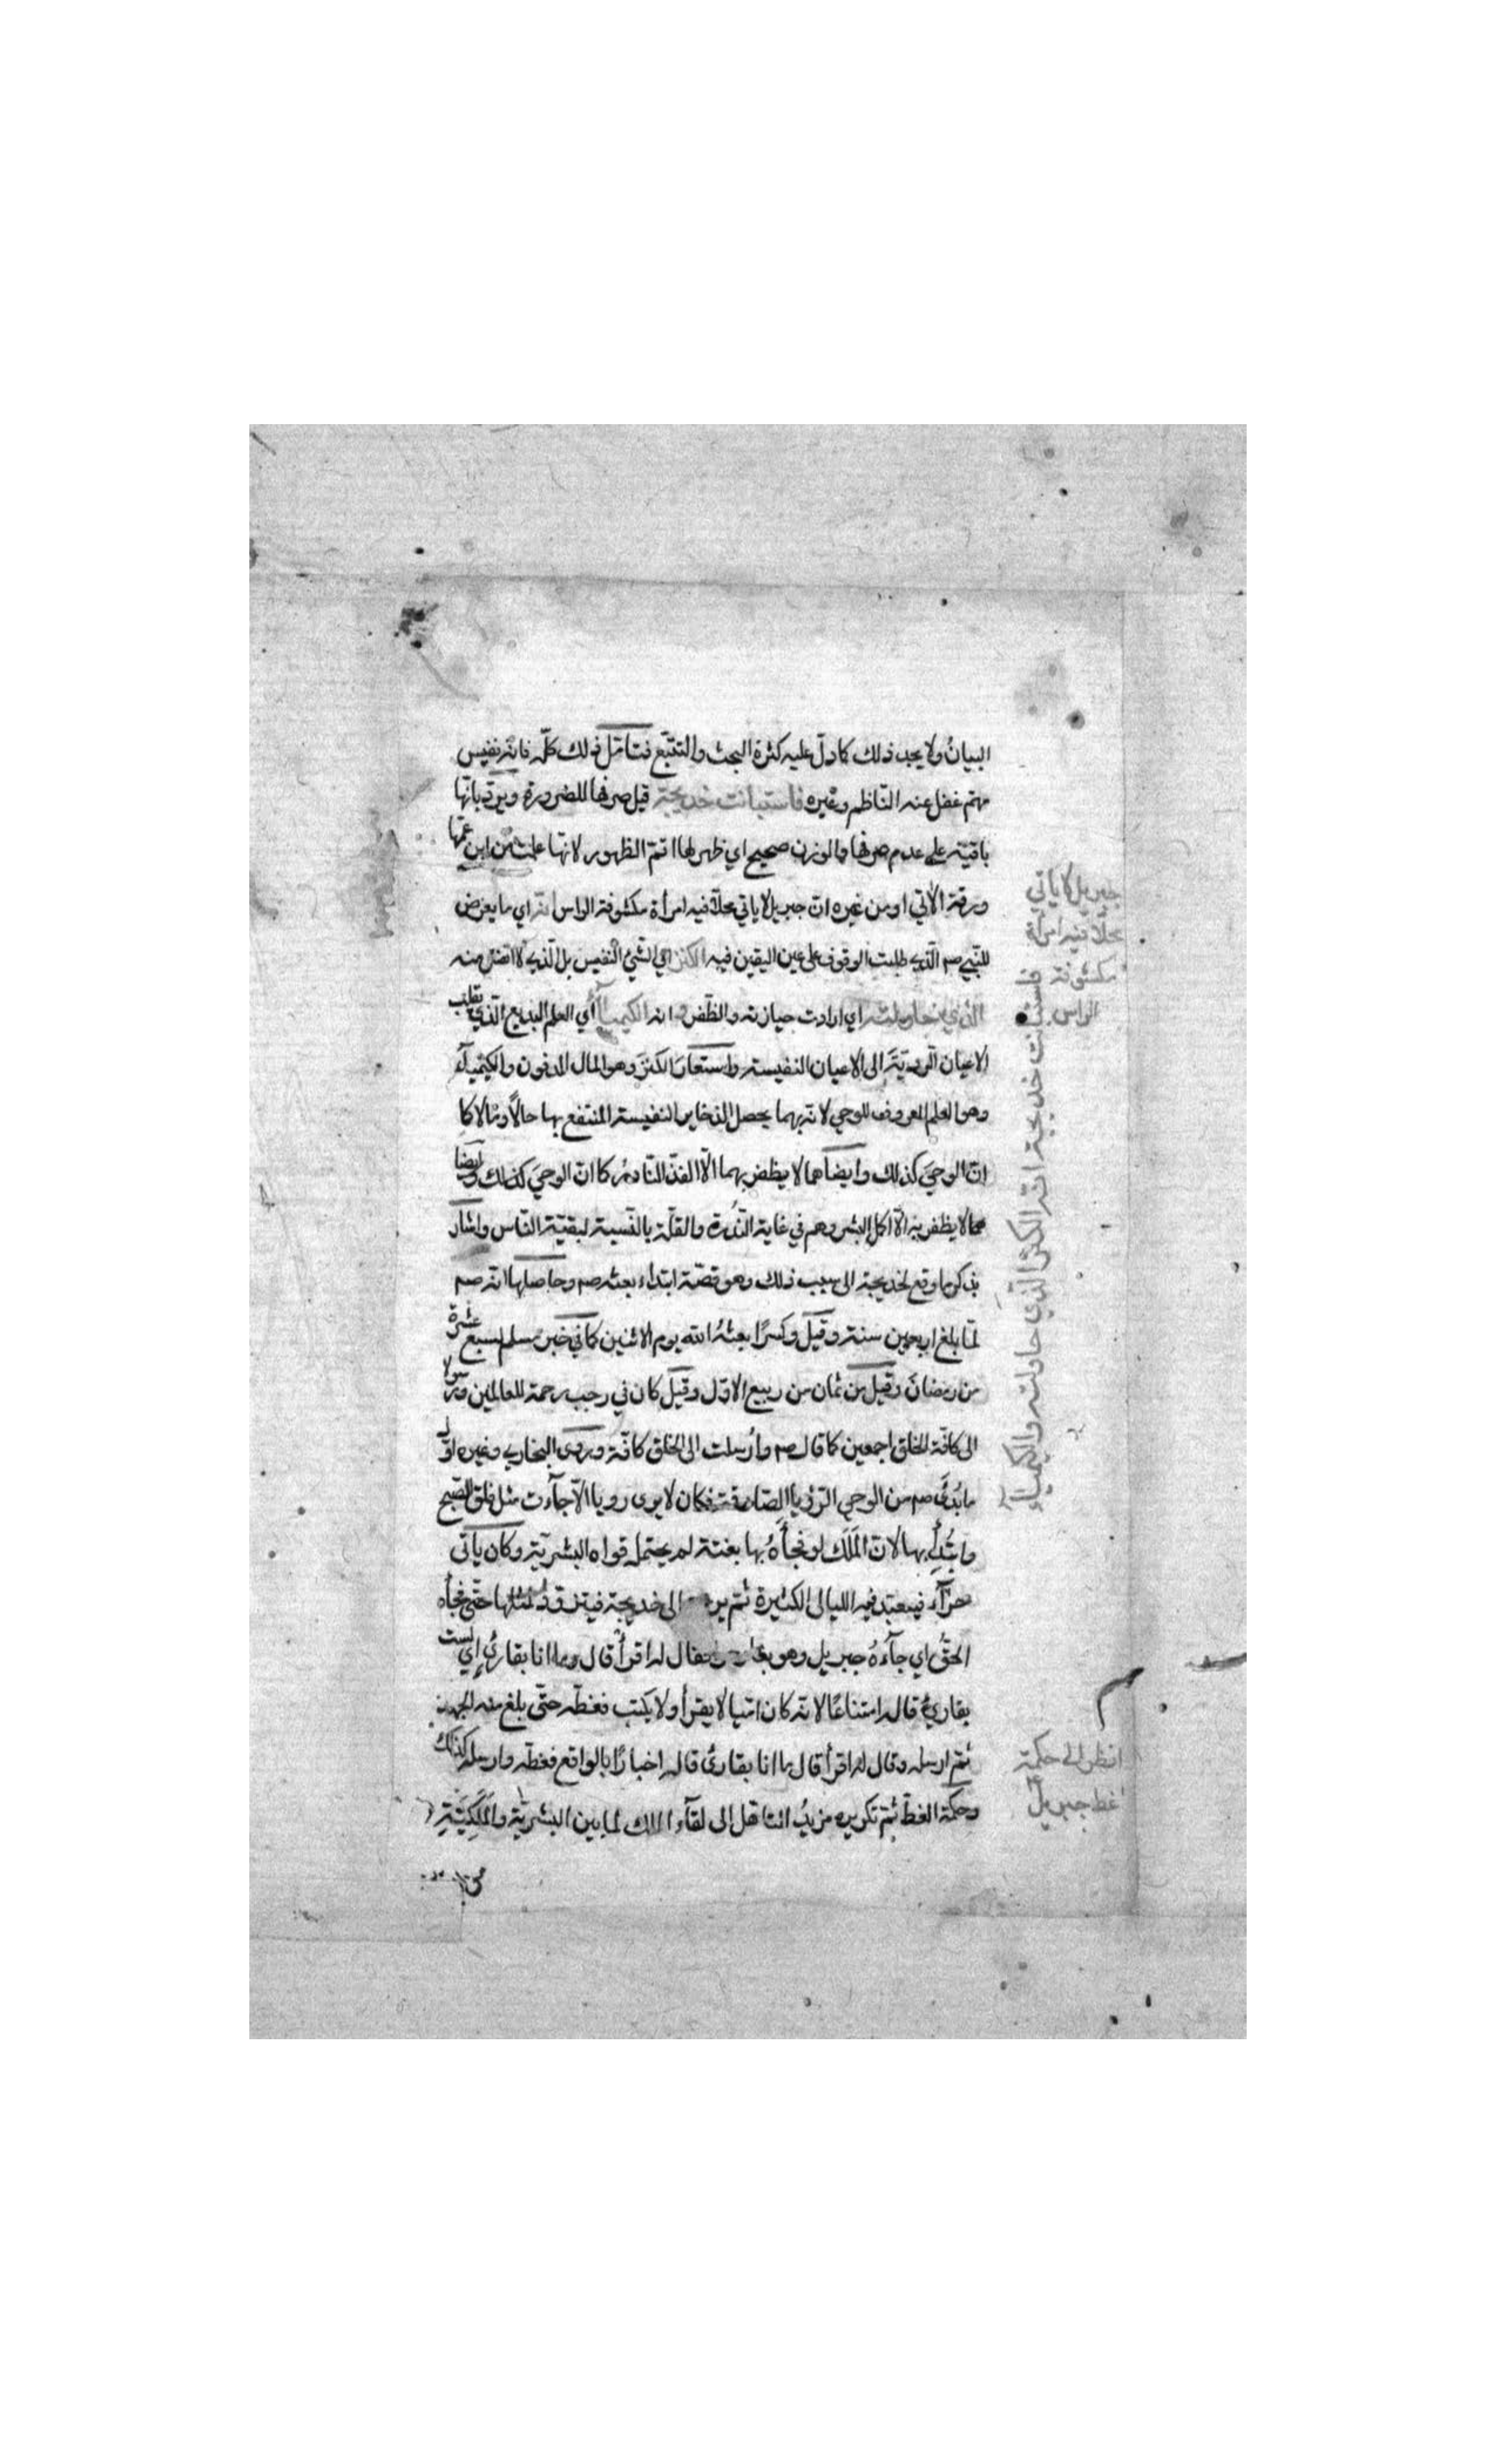 البيانُ ولا يجب ذلك كما دلّ عليه كثرة البحث والتتبّع فتأمّل ذلك كلّه فانّه نفيس
مهمّ غفل عنه النّاظم وغيره فاستبانت خديجة قيل صرفها للضرورة ويردّ بانّها
باقية على عدم صرفها والوزن صحيح اي ظهر لها اتمّ الظهور لانّها علمت من ابن عمّها
ورقة الآتي او من غيره انّ جبريل لا ياتي محلاّ فيه امرأة مكشوفة الراس انّه اي ما يعرض
للنّبي صم الّذي طلبت الوقوف على عين اليقين فيه الكنز اي الشّئ النّفيس بل الّذي لا انفس منه
الّذي حاولته اي ارادت حيازته والظّفر به وانه الكيمياء أي العلم البديع الّذي يقلب
الاعيان الرديّة الى الاعيان النفيسة واستعار الكنز وهو المال المدفون والكيمياء
وهو العلم المعروف للوحي لانّه بهما يحصل الذخاير النفيسة المنتفع بها حالاً ومآلا كما
انّ الوحيَ كذلك وايضا هما لا يظفر بهما الّا الفذّ النّادرُ كما انّ الوحيَ كذلك وايضا
هما لا يظفر به الّا اكمل البشر وهم في غاية النُّدرة والقلّة بالنّسبة لبقيّة النّاس واشار
بذكر ما وقع لخديجة الى سبب ذلك وهو قصّة ابتداء بعثه صم وحاصلها انّه صم
لمّا بلغ اربعين سنة وقيل وكسرًا بعثهُ الله يوم الاثنين كما في خبر مسلم لسبع عشرة
من رمضان وقيل من ثمان من ربيع الاوّل وقيل كان في رجب رحمة للعالمين ورسولا
الى كافّة الخلق اجمعين كما قال صم وأُرسلت الى الخلق كافّة وروى البخاري وغيره اوّل
ما بُدئَ صم من الوحي الرّؤيا الصّادقة فكان لا يرى رويا الّا جآءت مثل فلق الصّبح
وابتُدِأ بها لانّ المَلَك لو فجأَهُ بها بغتة لم يحتمله قواه البشريّة وكان ياتى
حرآء فيتعبّد فيه الليالى الكثيرة ثمّ الى خديجة فيتزوّدُ لمثلها حتّى فجأه
الحقُّ اي جآءهُ جبريل وهو فقال له اقرأ قال ما انا بقارئ اي لست
بقارئٍ قاله امتناعًا لانّه كان امّيا لا يقرأ ولا يكتب فغطّه حتّى بلغ منه الجهد
ثمّ ارسله وقال له اقرأ قال ما انا بقارئ قاله اخبارًا بالواقع فغطّه وارسله كذلك
وحكمة الغطّ ثمّ تكريره مزيدُ التاهّل الى لقآء الملك لما بين البشريّة والمَلَكيَّةِ
جبريل لا ياتي
محلاّ فيه امرأة
مكشوفة
الراس
فاستبانت خديجة انّه الكنز الّذي حاولته والكيمياء
انظر الى حكمة
غط جبريل